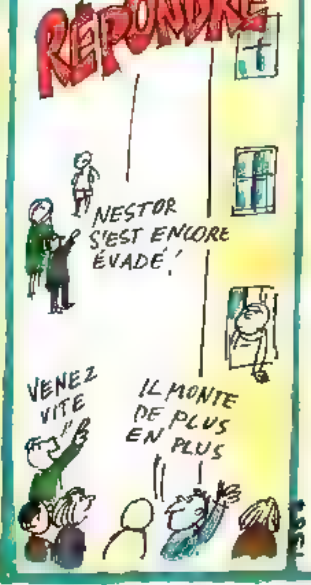 RÉPONDRE
NESTOR
S'EST ENCORE
ÉVADÉ!
VENEZ
VITE
IL MONTE
DE PLUS
EN PLUS